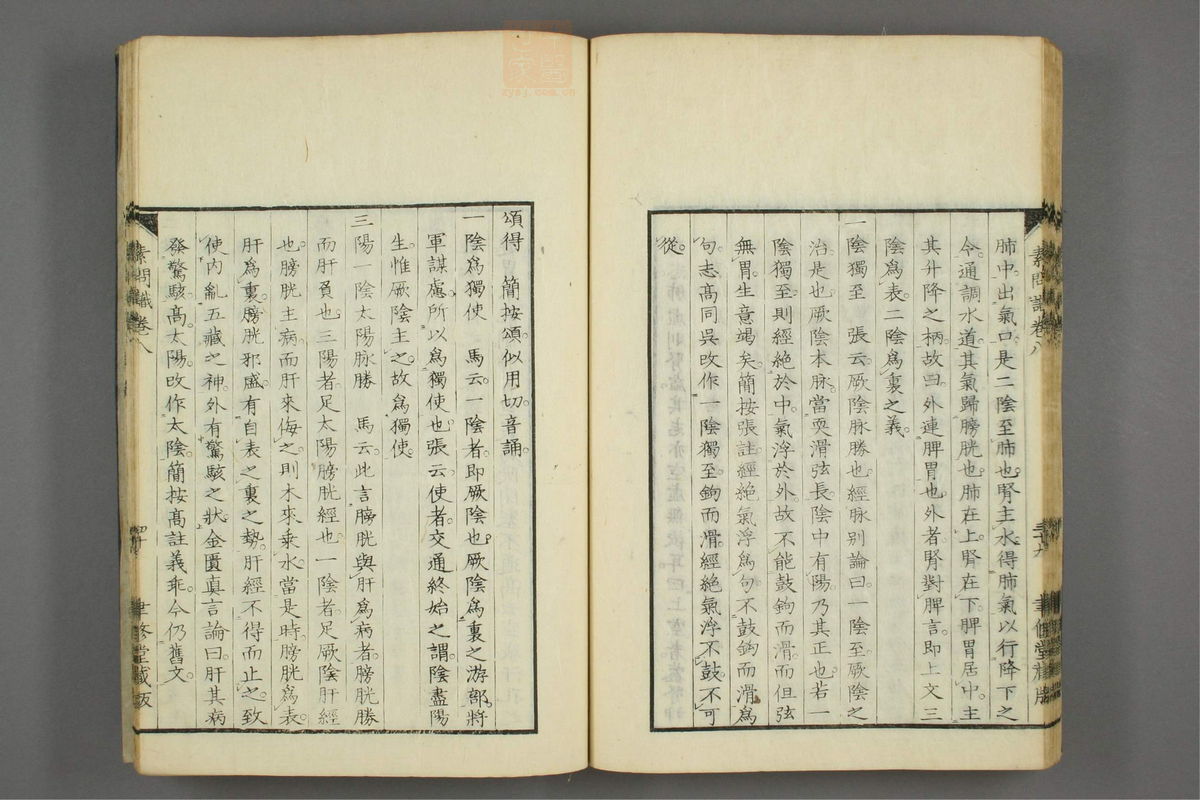 素問識卷八
三十九
聿修堂藏版
肺中。出氣口。是二陰至肺也。腎主水。得肺氣以行降下之
令。通調水道。其氣歸膀胱也。肺在上。腎在下。脾胃居中。主
其升降之柄。故曰。外連脾胃也。外者。腎對脾言。即上文三
陰爲表。二陰爲裏之義。
一陰獨至　張云。厥陰脉勝也。經脉別論曰。一陰至。厥陰之
治是也。厥陰本脉。當耎滑弦長。陰中有陽。乃其正也。若一
陰獨至。則經絶於中。氣浮於外。故不能鼓鉤而滑。而但弦
無胃。生意竭矣。簡按張註。經絶氣浮爲句。不鼓鉤而滑爲
句。志高同。吳改作一陰獨至。鉤而滑。經絶氣浮不鼓。不可
從。
頌得　簡按頌。似用切。音誦。
一陰爲獨使　馬云。一陰者。即厥陰也。厥陰爲裏之游部。將
軍謀慮。所以爲獨使也。張云。使者。交通終始之謂。陰盡陽
生。惟厥陰主之。故爲獨使。
三陽一陰太陽脉勝　馬云。此言膀胱與肝爲病者。膀胱勝
而肝負也。三陽者。足太陽膀胱經也。一陰者。足厥陰肝經
也。膀胱主病。而肝來侮之。則木來乘水。當是時。膀胱爲表。
肝爲裏。膀胱邪盛。有自表之裏之勢。肝經不得而止之。致
使內亂五藏之神。外有驚駭之狀。金匱眞言論曰。肝其病
發驚駭。高。太陽。改作太陰。簡按高註義乖。今仍舊文。
素問識卷八
四十
聿修堂藏版
zysj.com.cn